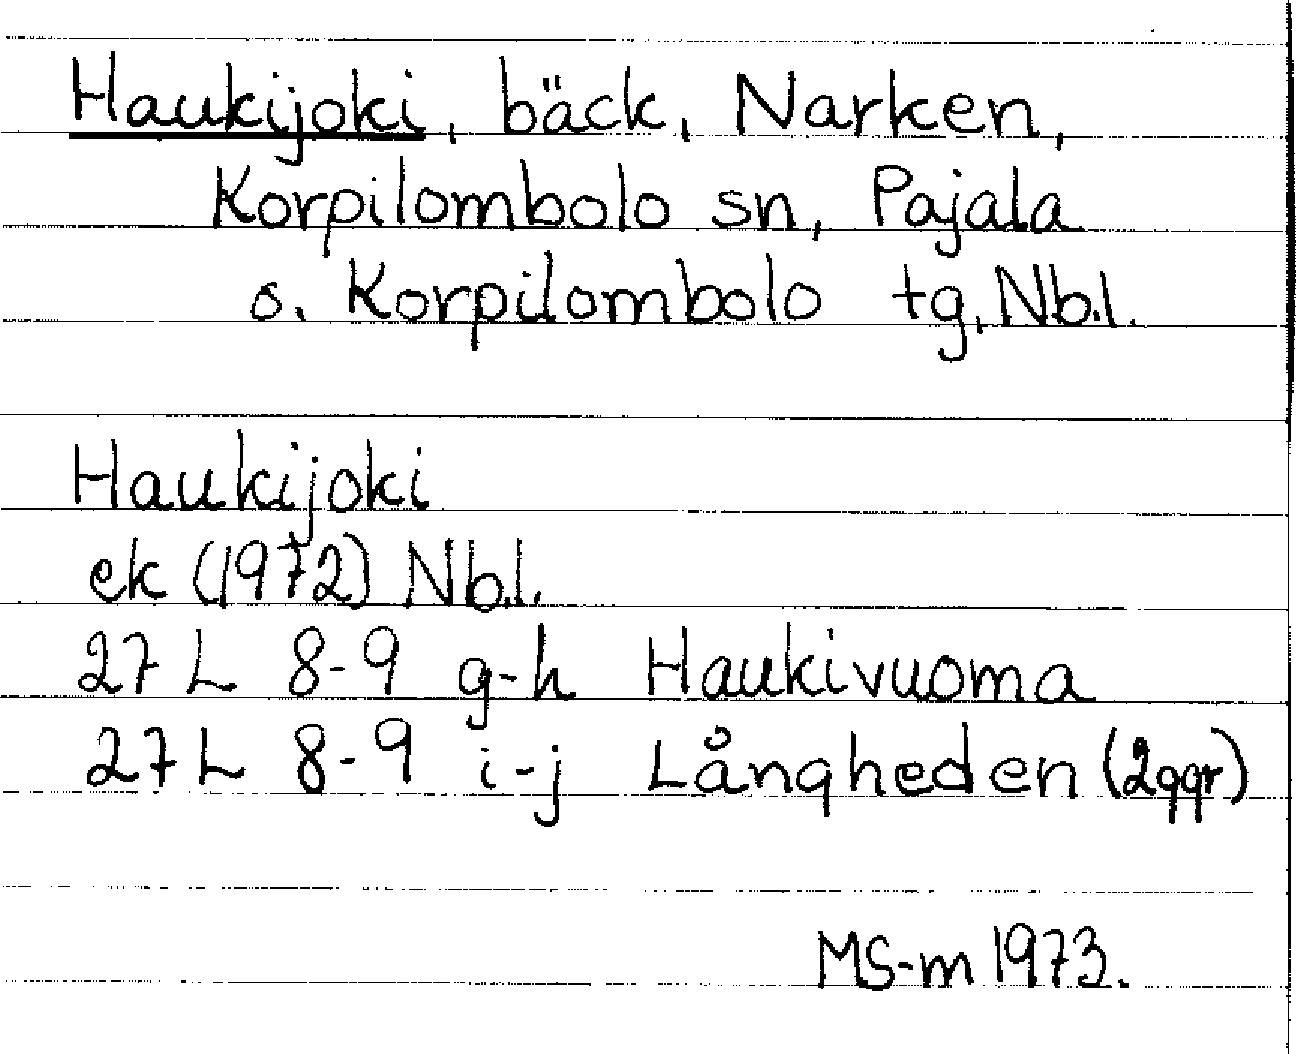 Haukijoki, bäck, Narken,
Korpilombolo sn, Pajala
o. Korpilombolo tg, Nb.l.
Haukijoki
ek (1972) Nb.l.
27 L 8-9 g-h Haukivuoma
27 L 8-9 i-j Långheden (2ggr)
MS-m 1973.